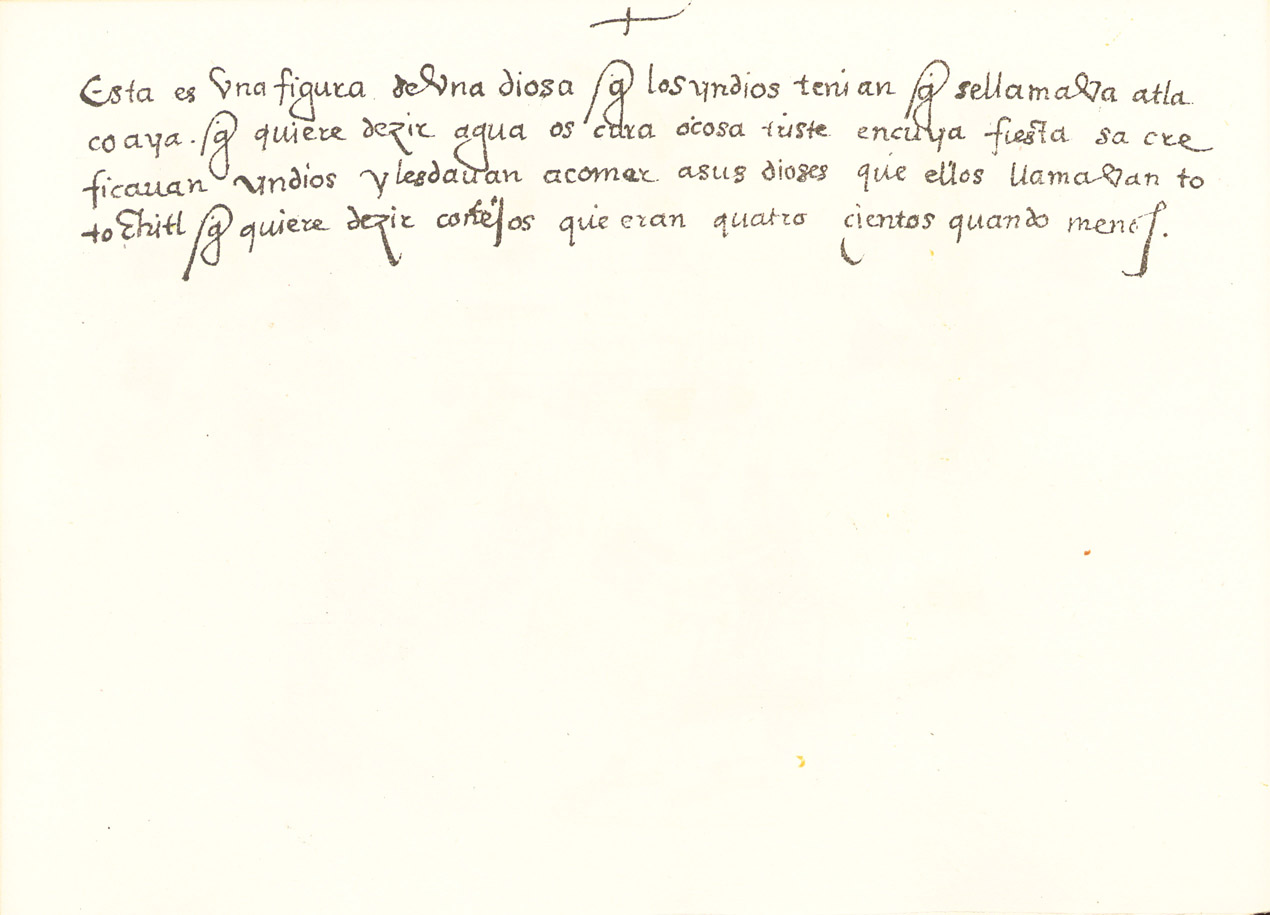 Esta es vna figura de vna diosa q̃ los yndios tenian q̃ se llamava atla
coaya . q̃ quiere dezir agua oscura o cosa triste en cuya fiesta sacre
ficauan yndios y les dauan a comer a sus dioses que ellos llamavan to
tochitl q̃ quiere dezir que eran quatro cientos quando menos.